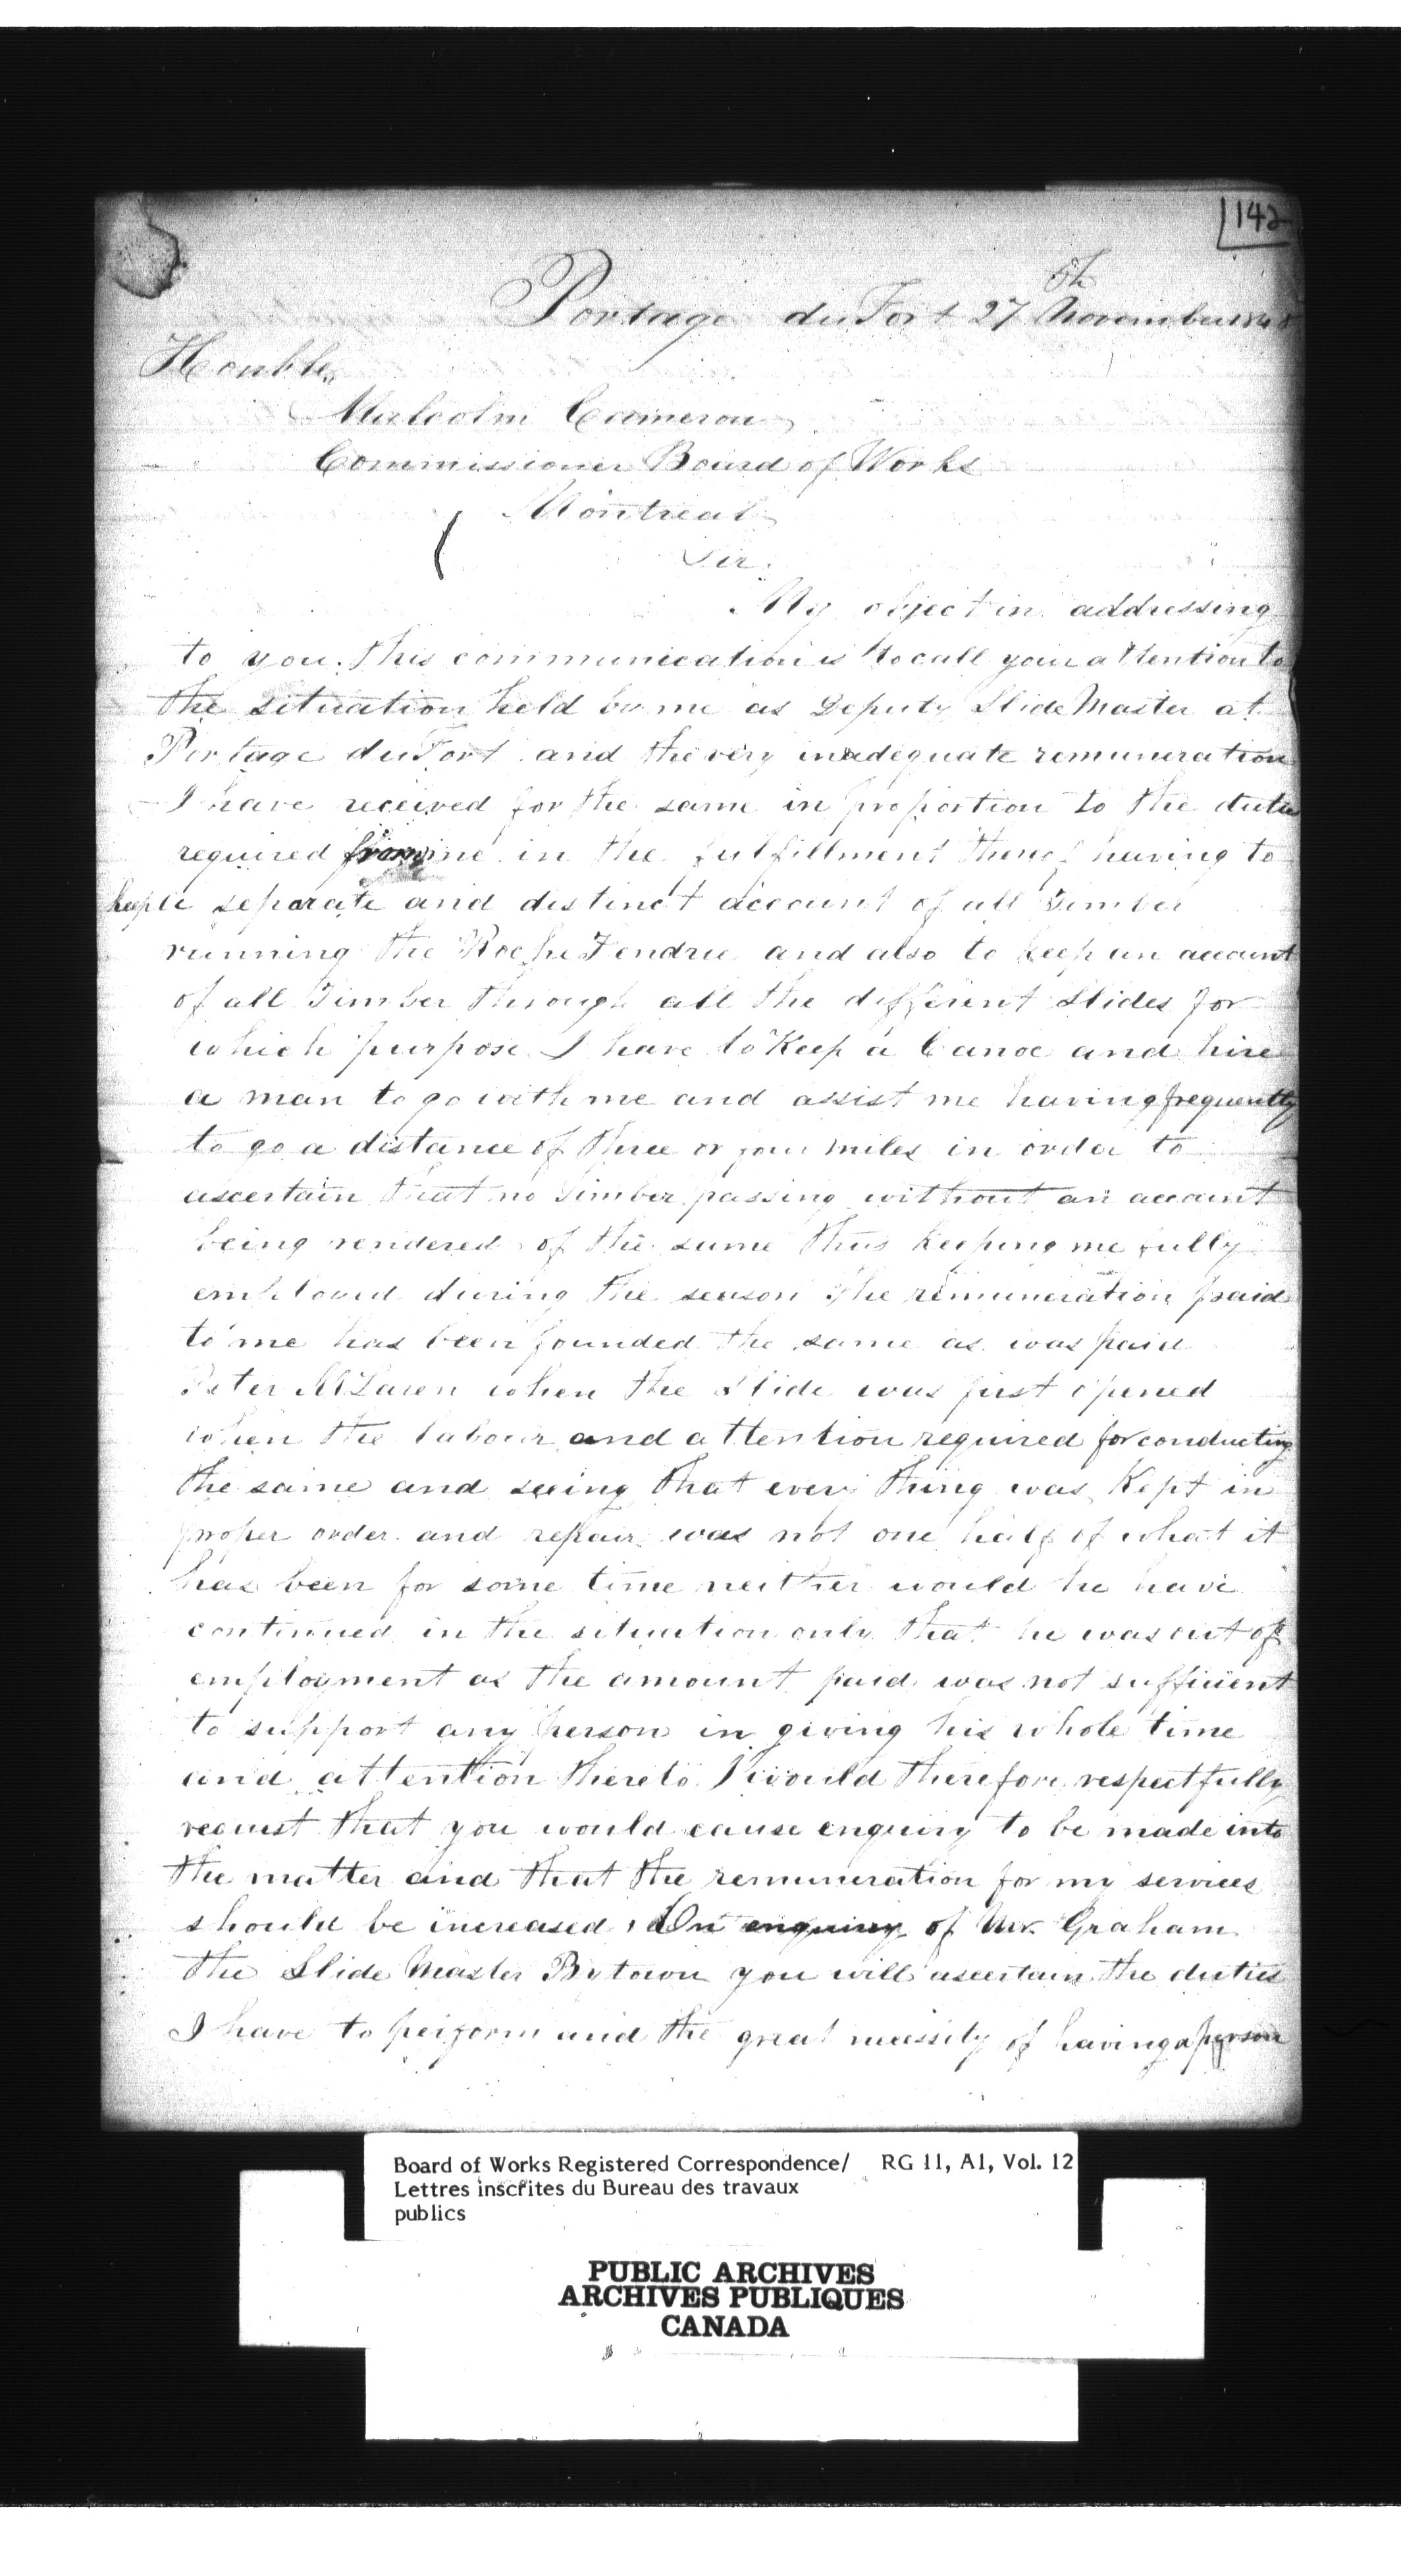 142
Portage du Fort 27th November 1848
Honble
Malcolm Cameron
Commissioner Board of Works
Montreal
Sir
My object in addressing
to you this communication is to call your attention to
the situation held by me as Deputy Slide Master at
Portage du Fort and the very inadequate remuneration
I have received for the same in proportion to the duties
required from me in the fulfillment thereof having to
keep a separate and distinct account of all Timber
running the Roche Fendrie and also to keep an account
of all Timber through all the different Slides for
which purpose I have to keep a Canoe and hire
a man to go with me and assist me having frequently
to go a distance of three or four miles in order to
ascertain that no Timber passing without an account
being rendered of the same thus keeping me fully
employed during the season The remuneration paid
to me has been founded the same as was paid
Peter McLaren when the Slide was first opened
when the labour and attention required for conducting
the same and seeing that every thing was Kept in
proper order and repair was not one half of what it
has been for some time neither would he have
continued in the situation only that he was out of
employment as the amount paid was not sufficient
to support any person in giving his whole time
and attention thereto I would therefore respectfully
request that you would cause enquiry to be made into
the matter and that the remuneration for my services
should be increased On enquiry of Mr. Graham
the Slide Master Bytown you will ascertain the duties
I have to perform and the great necessity of having a person
Board of Works Registered Correspondence/ RG 11, A1, Vol. 12
Lettres inscrites du Bureau des travaux
publics
PUBLIC ARCHIVES
ARCHIVES PUBLIQUES
CANADA